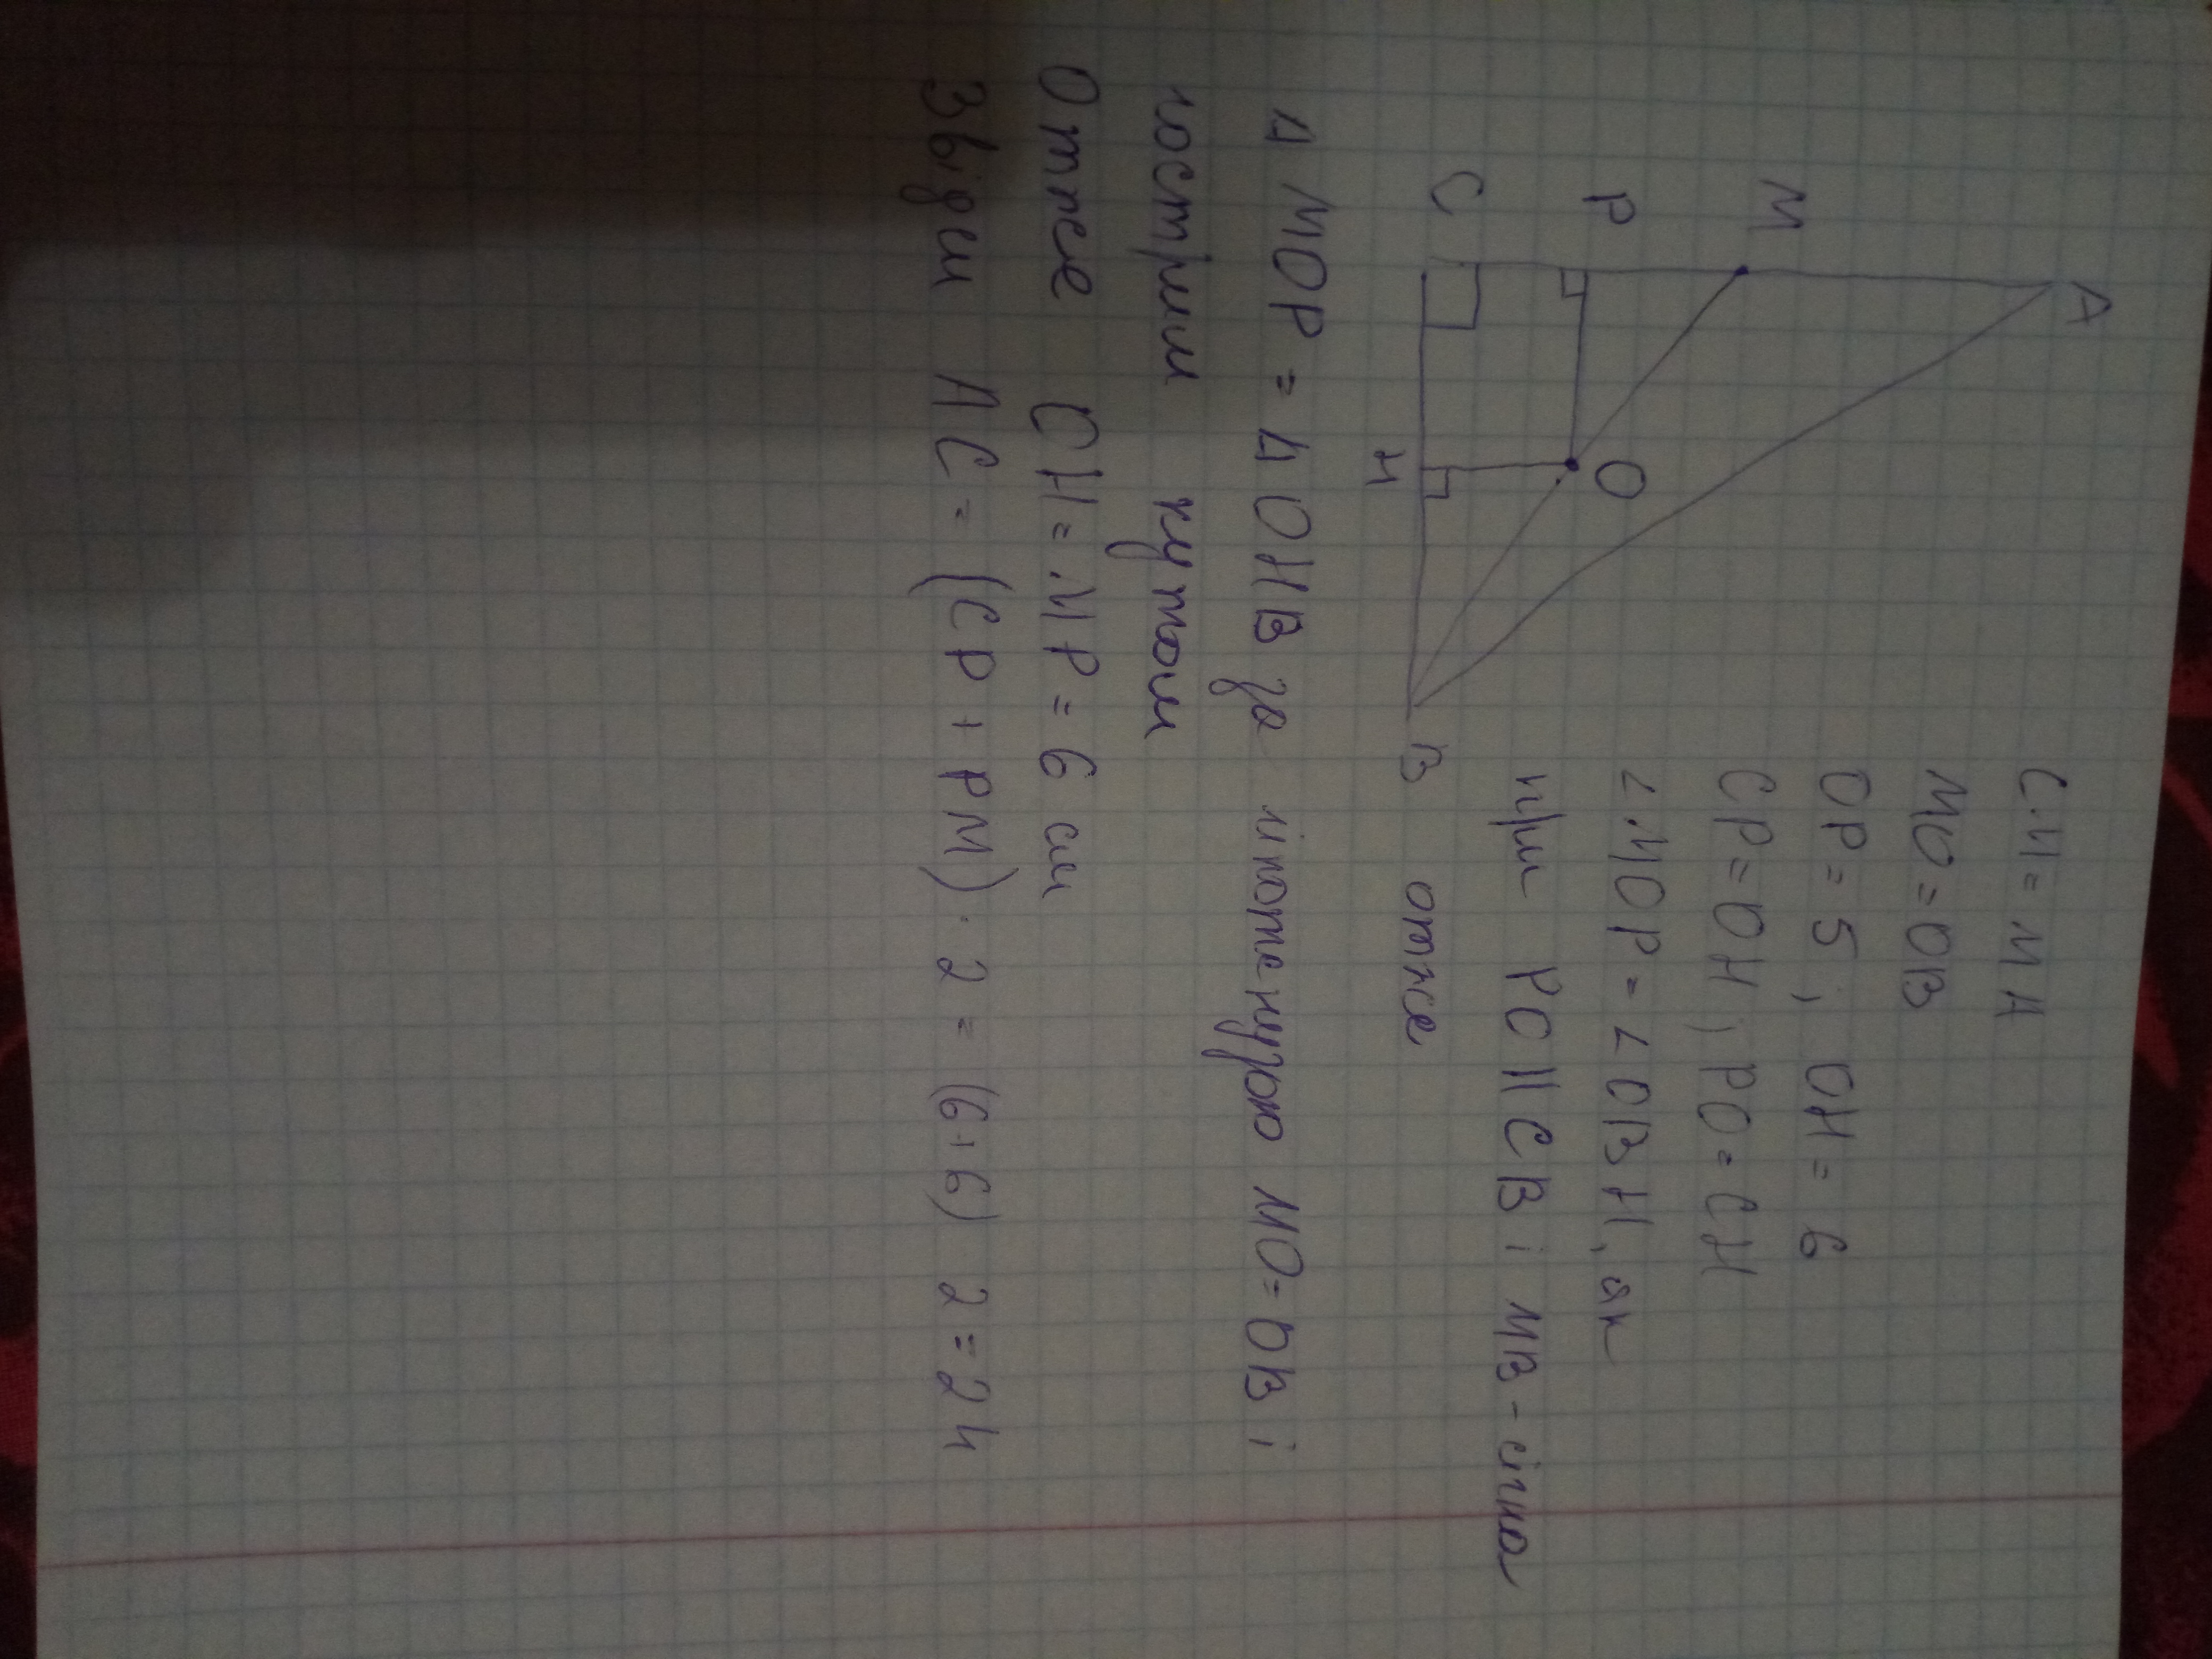 A
M
P
C
O
H
B
CM = MA
MO = OB
OP = 5 ; OH = 6
CP = OH ; PO = CH
∠MOP = ∠OBH, як
при PO || CB і MB - січна
отже
Δ MOP = Δ OHB за гіпотенузою MO = OB і
гострим кутом
Отже OH = MP = 6 см
Звідси AC = (CP + PM) · 2 = (6+6) 2 = 24